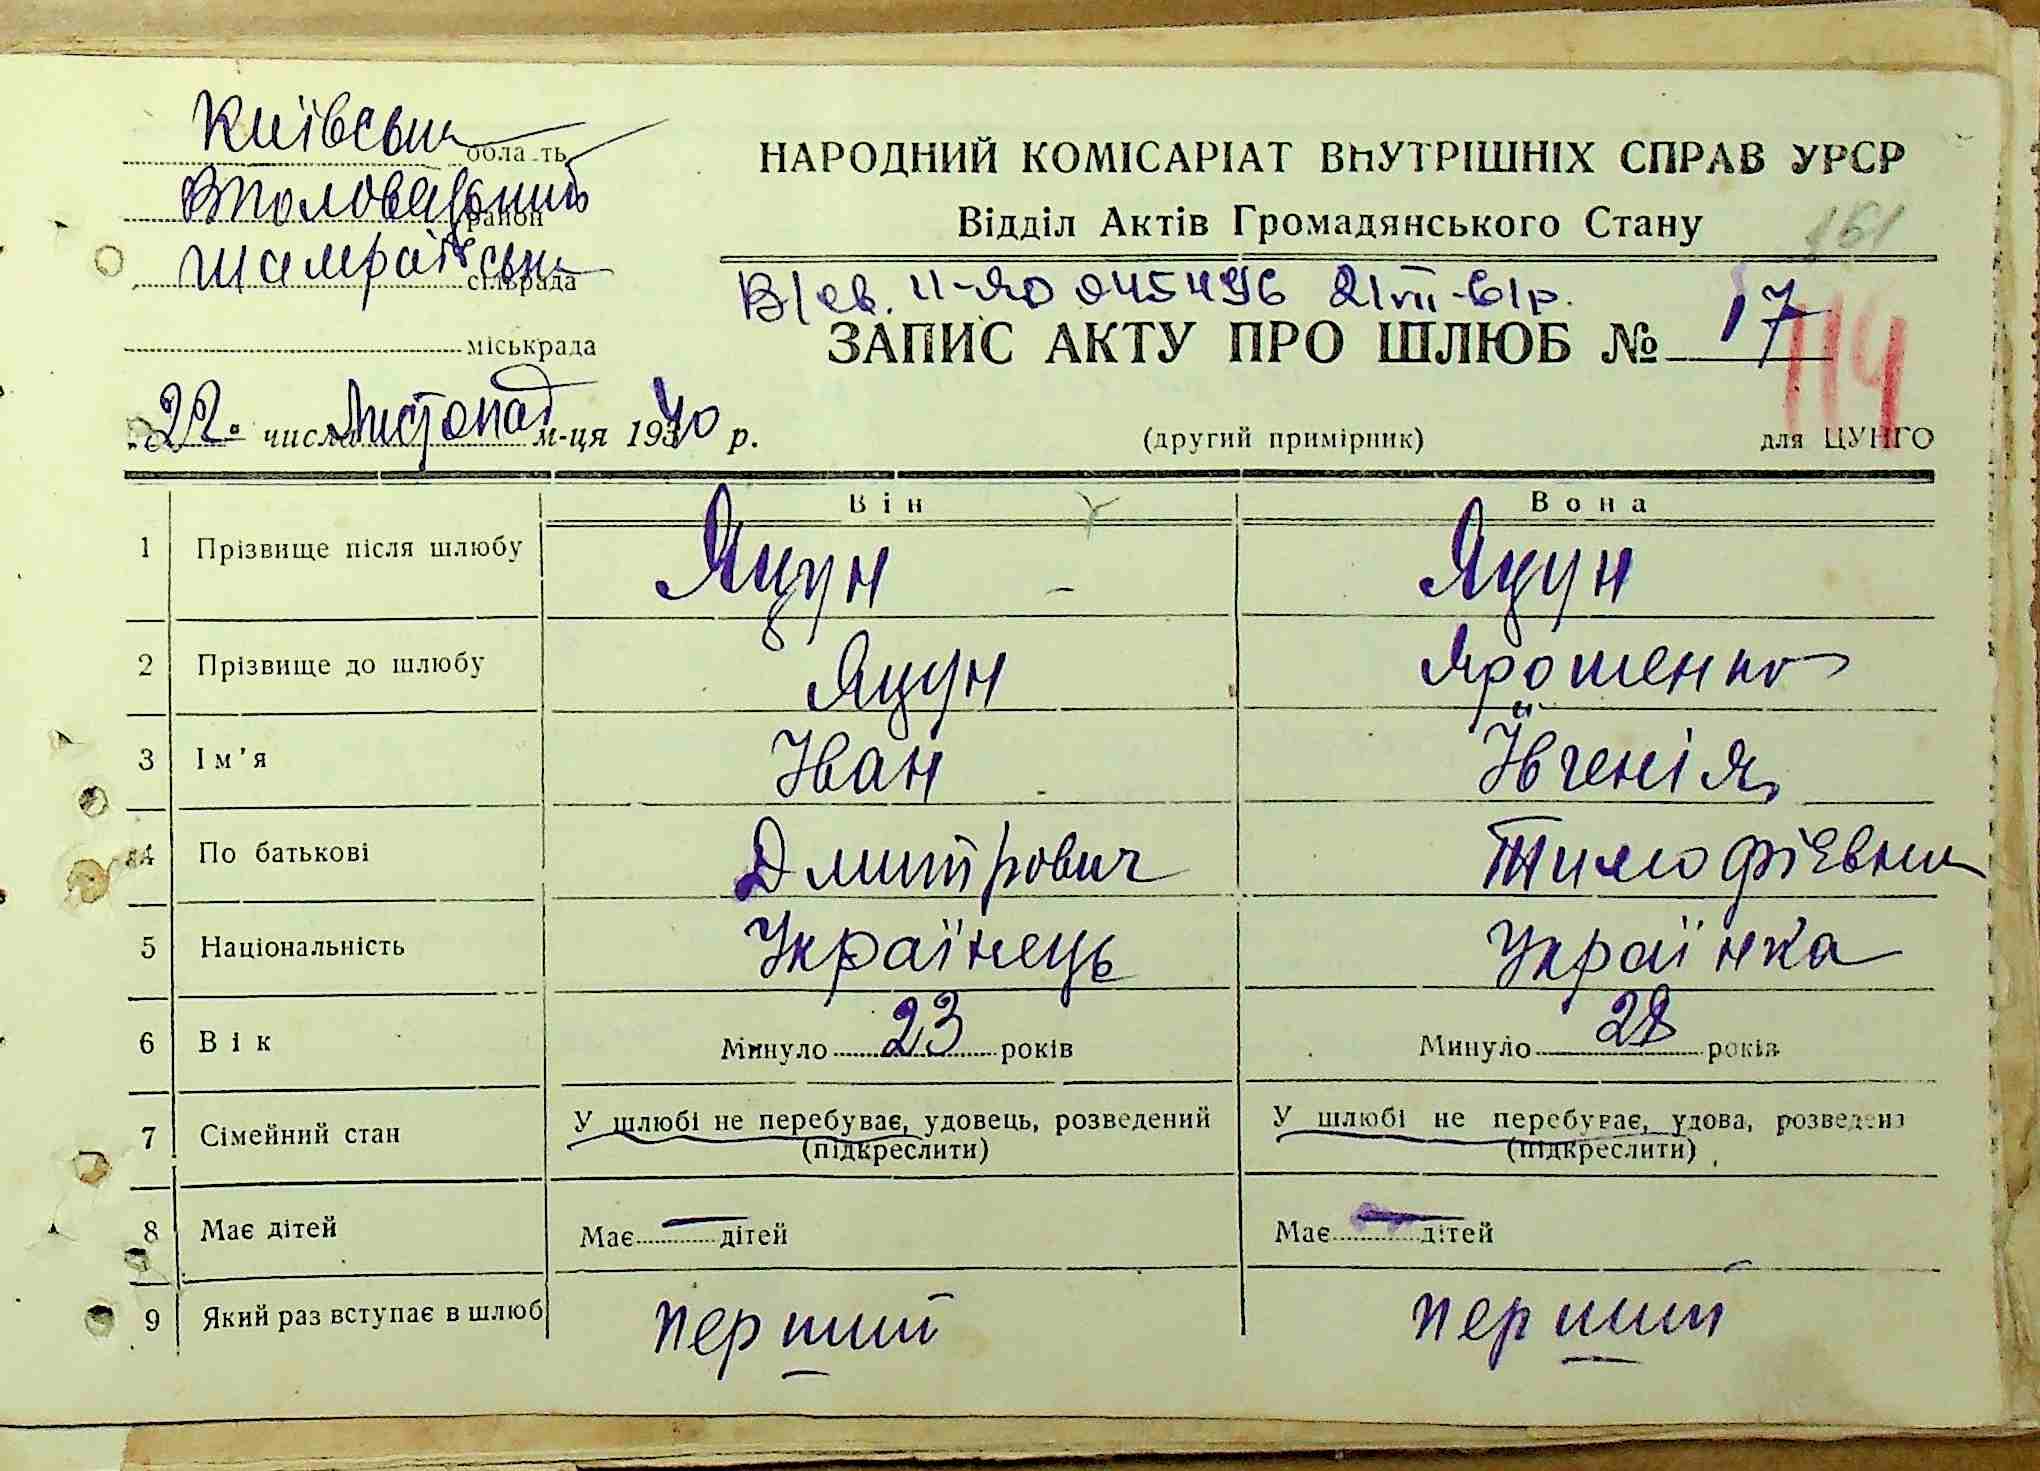 Київська область
район
Шамраївська сільрада
міськрада
НАРОДНИЙ КОМІСАРІАТ ВНУТРІШНІХ СПРАВ УРСР
Відділ Актів Громадянського Стану
161
В/св. II-ЯЮ 045496 21 VII-61р.
ЗАПИС АКТУ ПРО ШЛЮБ № 17
114
22 числа Листопад м-ця 1940 р.
(другий примірник)
для ЦУНГО
Він Вона
1 Прізвище після шлюбу Яцун Яцун
2 Прізвище до шлюбу Яцун Ярошенко
3 Ім'я Іван Ївгенія
4 По батькові Дмитрович Тимофієвна
5 Національність Українець Українка
6 Вік Минуло 23 років Минуло 28 років
7 Сімейний стан У шлюбі не перебуває, удовець, розведений У шлюбі не перебуває, удова, розведена
(підкреслити) (підкреслити)
8 Має дітей Має — дітей Має — дітей
9 Який раз вступає в шлюб перший перший